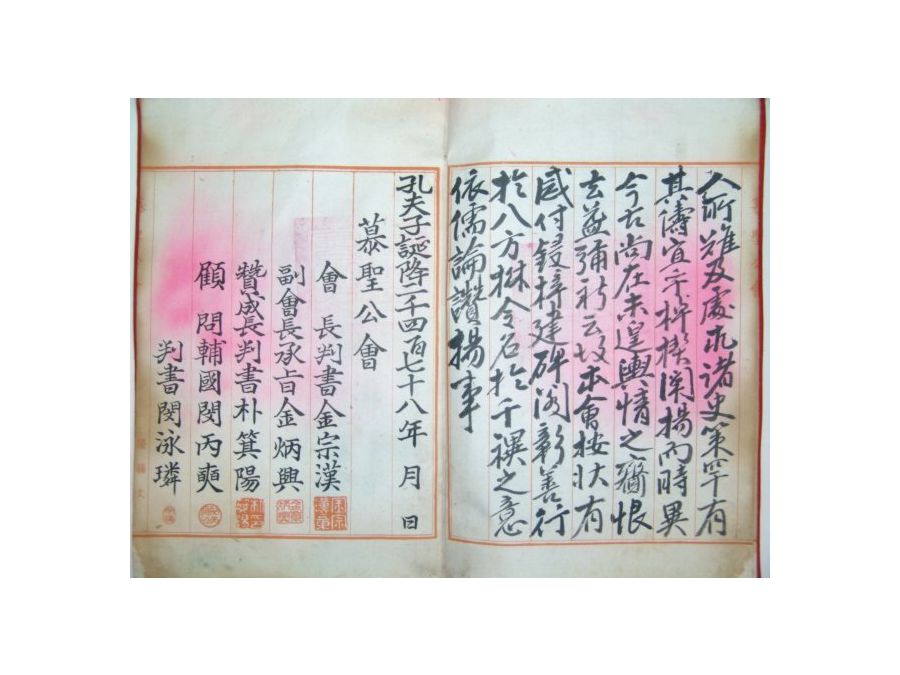 人所難及處求諸史策罕有
其儔宜乎棹楔闡揚而時異
今古尚在未遑輿情之齎恨
去益彌新云故本會接狀有
感付鋟梓建碑閣彰善行
於八方楙令名於千禩之意
依儒論讚揚事
孔夫子誕降二千四百七十八年 月 日
慕聖公會
會長判書金宗漢
副會長承旨金炳興
贊成長判書朴箕陽
顧問輔國閔丙奭
判書閔泳璘